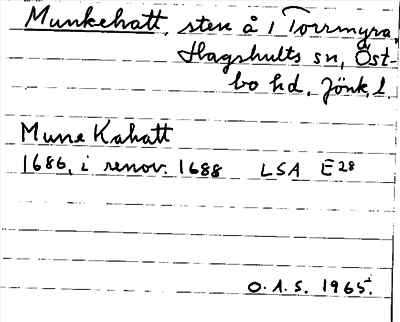 Munkehatt, sten å 1 Torrmyra,
Hagshults sn, Öst-
bo hd, Jönk. l.
Mune Kahatt
1686, i renov. 1688 LSA E28
O.A.S. 1965.